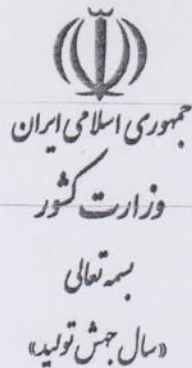 جمهوری اسلامی ایران
وزارت کشور
بسمه تعالی
«سال جهش تولید»